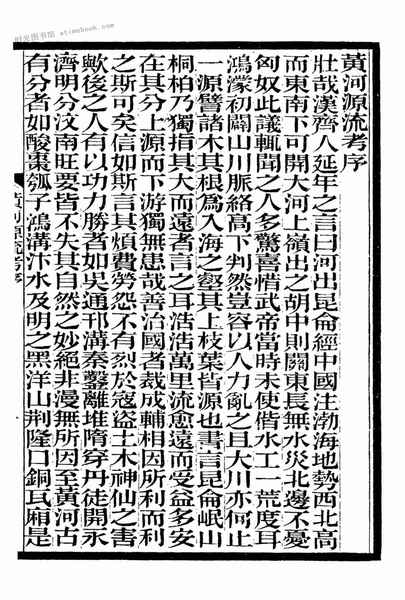 时光图书馆 · stimebook.com
黃河源流考序
壯哉漢齊人延年之言曰河出昆侖經中國注渤海地勢西北高
而東南下可開大河上嶺出之胡中則關東長無水災北邊不憂
匈奴此議輒聞之人多驚喜惜武帝當時未使偕水工一荒度耳
鴻濛初闢山川脈絡高下判然豈容以人力亂之且大川亦何止
一源譬諸木其根爲入海之壑其上枝葉皆源也書言昆侖岷山
桐柏乃獨指其大而遠者言之耳浩浩萬里流愈遠而受益多安
在其分上源而下游獨無患哉善治國者裁成輔相因所利而利
之斯可矣信如斯言其煩費勞怨不有烈於寇盜土木神仙之害
歟後之人有以功力勝者如吳通刊溝秦鑿離堆隋穿丹徒開永
濟明分汶南旺要皆不失其自然之妙絕非漫無所因至黃河古
有分者如酸棗瓠子鴻溝汴水及明之黑洋山荆隆口銅瓦廂是
黃河源流考序